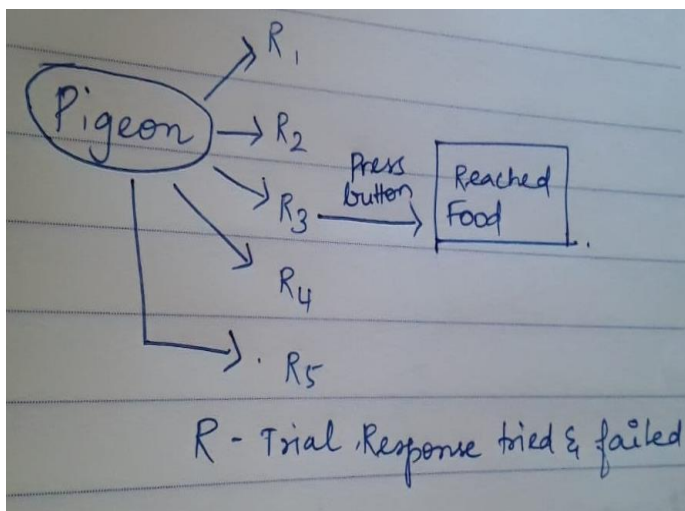 R1
Pigeon
R2
Press
button
R3
Reached
Food
R4
R5
R - Trial, Response tried & failed